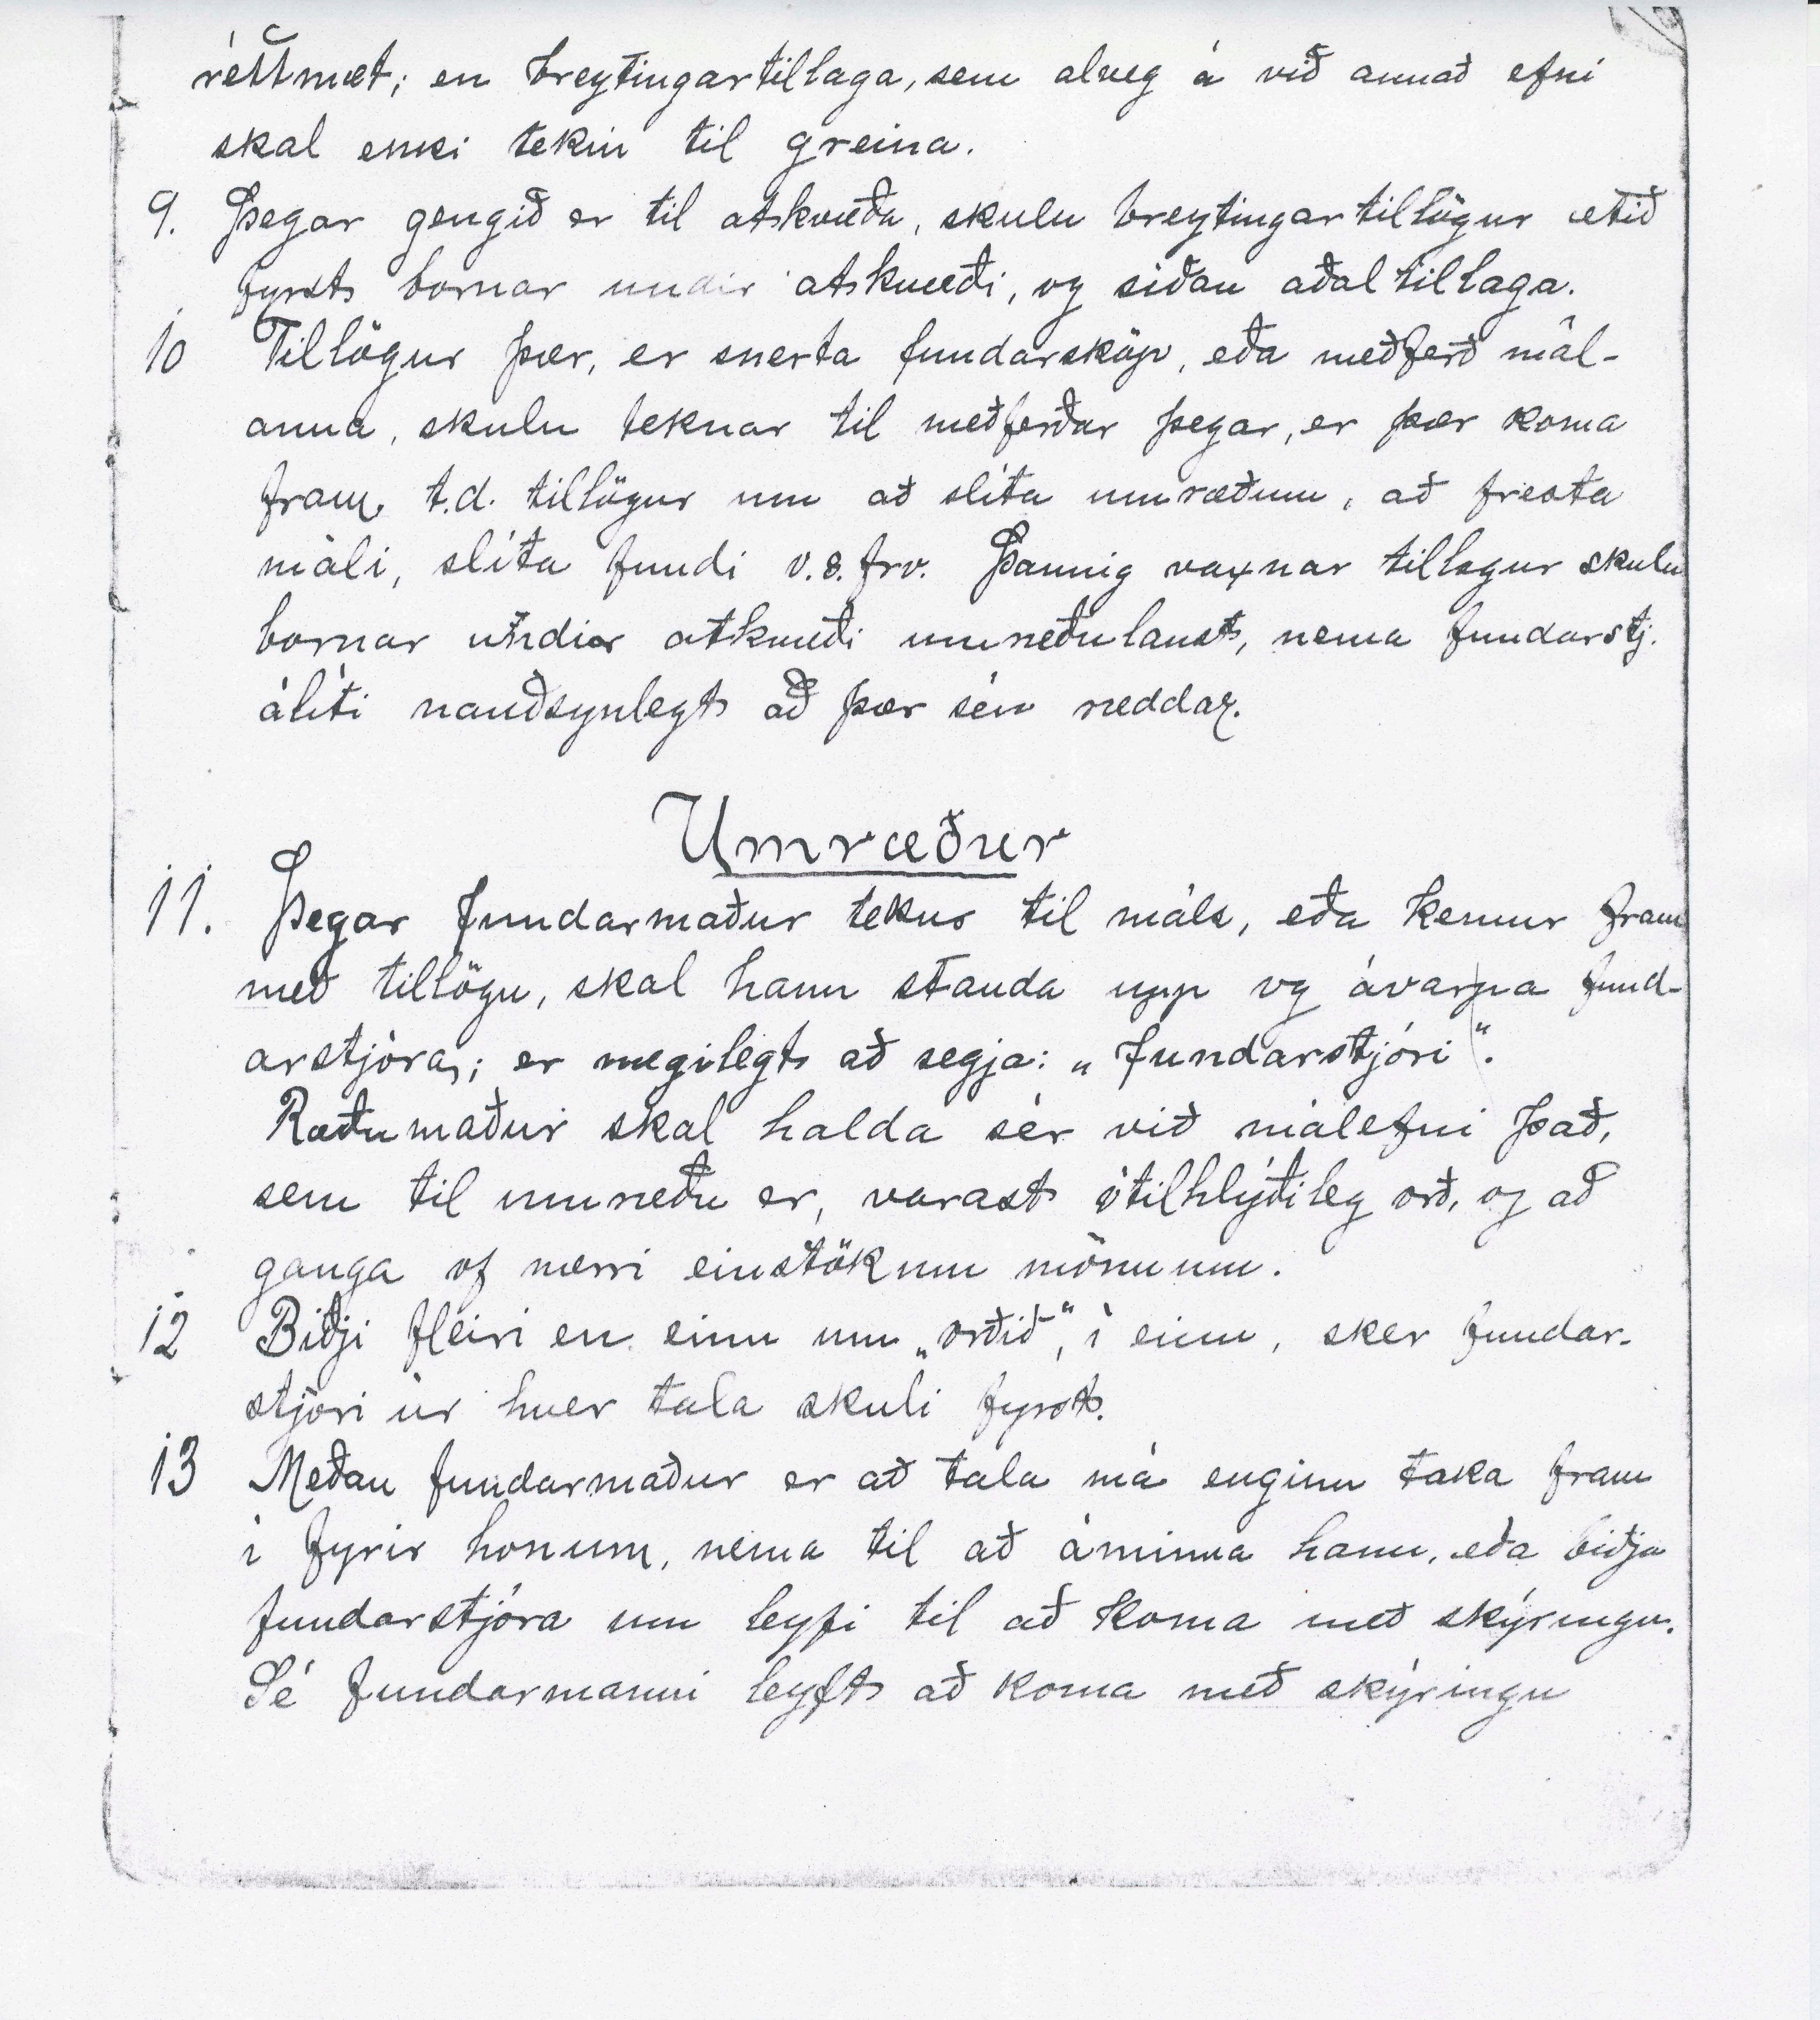 réttmæt; en breytingartillaga, sem alveg á við annað efni
skal ekki tekin til greina.
9. Þegar gengið er til atkvæða, skulu breytingartillögur ætið
fyrst bornar undir atkvæði, og siðan aðaltillaga.
10 Tillögur þær, er snerta fundarsköp, eða meðferð mál-
anna, skulu teknar til meðferðar þegar, er þær koma
fram, t.d. tillögur um að slíta umræðum, að fresta
máli, slíta fundi o.s.frv. Þannig vaxnar tillögur skulu
bornar undir atkvæði umræðulaust, nema fundarstj.
álíti nauðsynlegt að þær séu ræddar.
Umræður
11. Þegar fundarmaður tekur til máls, eða kemur fram
með tillögu, skal hann standa upp og ávarpa fund-
arstjóra; er nægilegt að segja: „Fundarstjóri“.
Ræðumaður skal halda sér við málefni það,
sem til umræðu er, varast ótilhlýðileg orð, og að
ganga of nærri einstökum mönnum.
12 Biðji fleiri en einn um „orðið“, í einu, sker fundar-
stjóri úr hver tala skuli fyrst.
13 Meðan fundarmaður er að tala má enginn taka fram
í fyrir honum, nema til að áminna hann, eða biðja
fundarstjóra um leyfi til að koma með skýringu.
Sé fundarmanni leyft að koma með skýringu